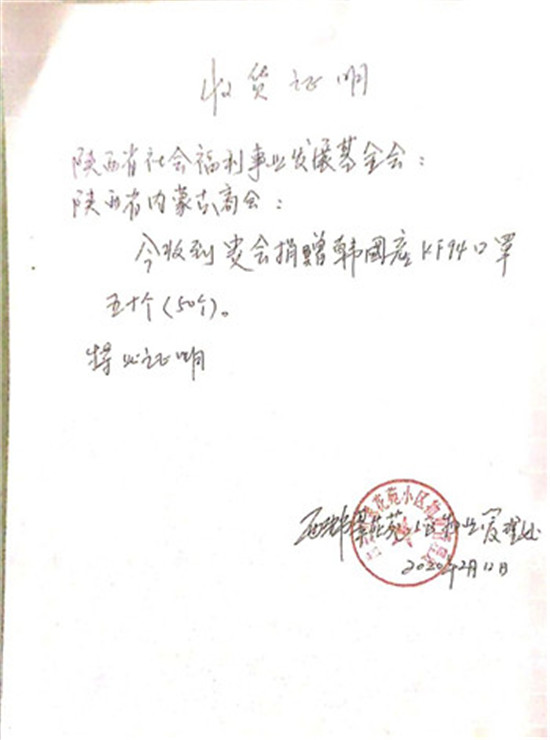 收货证明
陕西省社会福利事业发展基金会：
陕西省内蒙古商会：
今收到贵会捐赠韩国产KF94口罩
五十个（50个）。
特此证明
花苑小区物业管理处
2020年2月12日